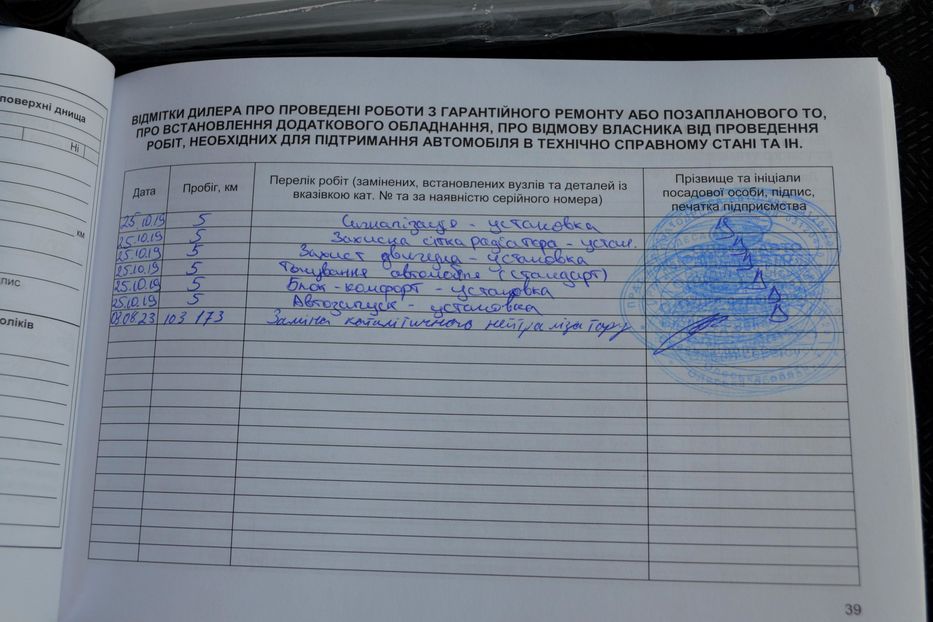 поверхні днища
Ні
км
пис
оліків
ВІДМІТКИ ДИЛЕРА ПРО ПРОВЕДЕНІ РОБОТИ З ГАРАНТІЙНОГО РЕМОНТУ АБО ПОЗАПЛАНОВОГО ТО,
ПРО ВСТАНОВЛЕННЯ ДОДАТКОВОГО ОБЛАДНАННЯ, ПРО ВІДМОВУ ВЛАСНИКА ВІД ПРОВЕДЕННЯ
РОБІТ, НЕОБХІДНИХ ДЛЯ ПІДТРИМАННЯ АВТОМОБІЛЯ В ТЕХНІЧНО СПРАВНОМУ СТАНІ ТА ІН.
Дата
Пробіг, км
Перелік робіт (замінених, встановлених вузлів та деталей із
вказівкою кат. № та за наявністю серійного номера)
Прізвище та ініціали
посадової особи, підпис,
печатка підприємства
25.10.19 5 Сигналізація - установка
25.10.19 5 Захисна сітка радіатора - устан.
25.10.19 5 Захист двигуна - установка
25.10.19 5 Тонування автомобіля (стандарт)
25.10.19 5 Блок-комфорт - установка
25.10.19 5 Автозапуск - установка
08.23 103 173 Заміна каталітичного нейтралізатору
39